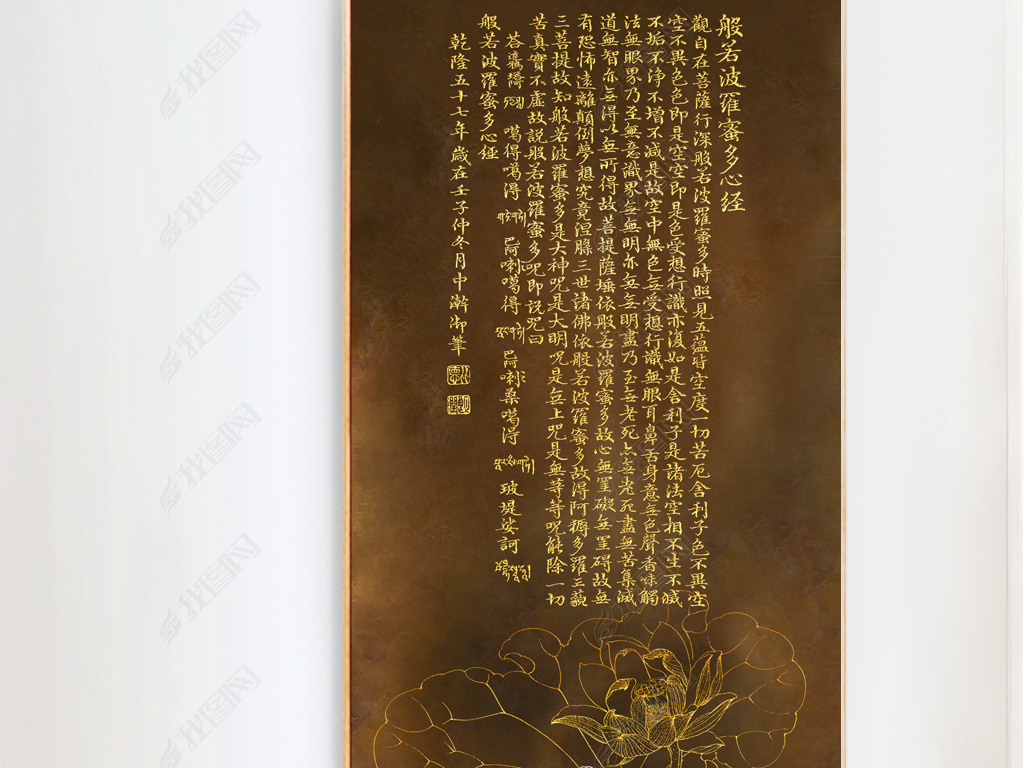 般若波羅蜜多心经
觀自在菩薩行深般若波羅蜜多時照見五蘊皆空度一切苦厄舍利子色不異空
空不異色色即是空空即是色受想行識亦復如是舍利子是諸法空相不生不滅
不垢不淨不增不减是故空中無色無受想行識無眼耳鼻舌身意無色聲香味觸
法無眼界乃至無意識界無無明亦無無明盡乃至無老死亦無老死盡無苦集滅
道無智亦無得以無所得故菩提薩埵依般若波羅蜜多故心無罣礙無罣碍故無
有恐怖遠離顛倒夢想究竟涅槃三世諸佛依般若波羅蜜多故得阿耨多羅三藐
三菩提故知般若波羅蜜多是大神咒是大明咒是無上咒是無等等咒能除一切
苦真實不虛故説般若波羅蜜多咒即説咒曰
噶得噶得 噶得 桑噶得 玻堤娑訶
般若波羅蜜多心经
乾隆五十七年歲在壬子仲冬月中澣御筆
找图网